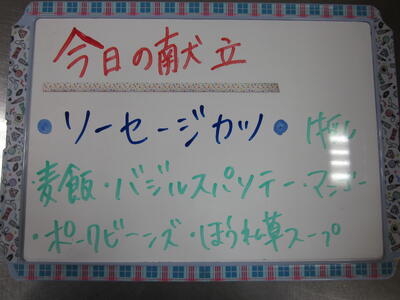 今日の献立
・ソーセージカツ・
麦飯・バジルスパソテー・
・ポークビーンズ・ほうれん草スープ